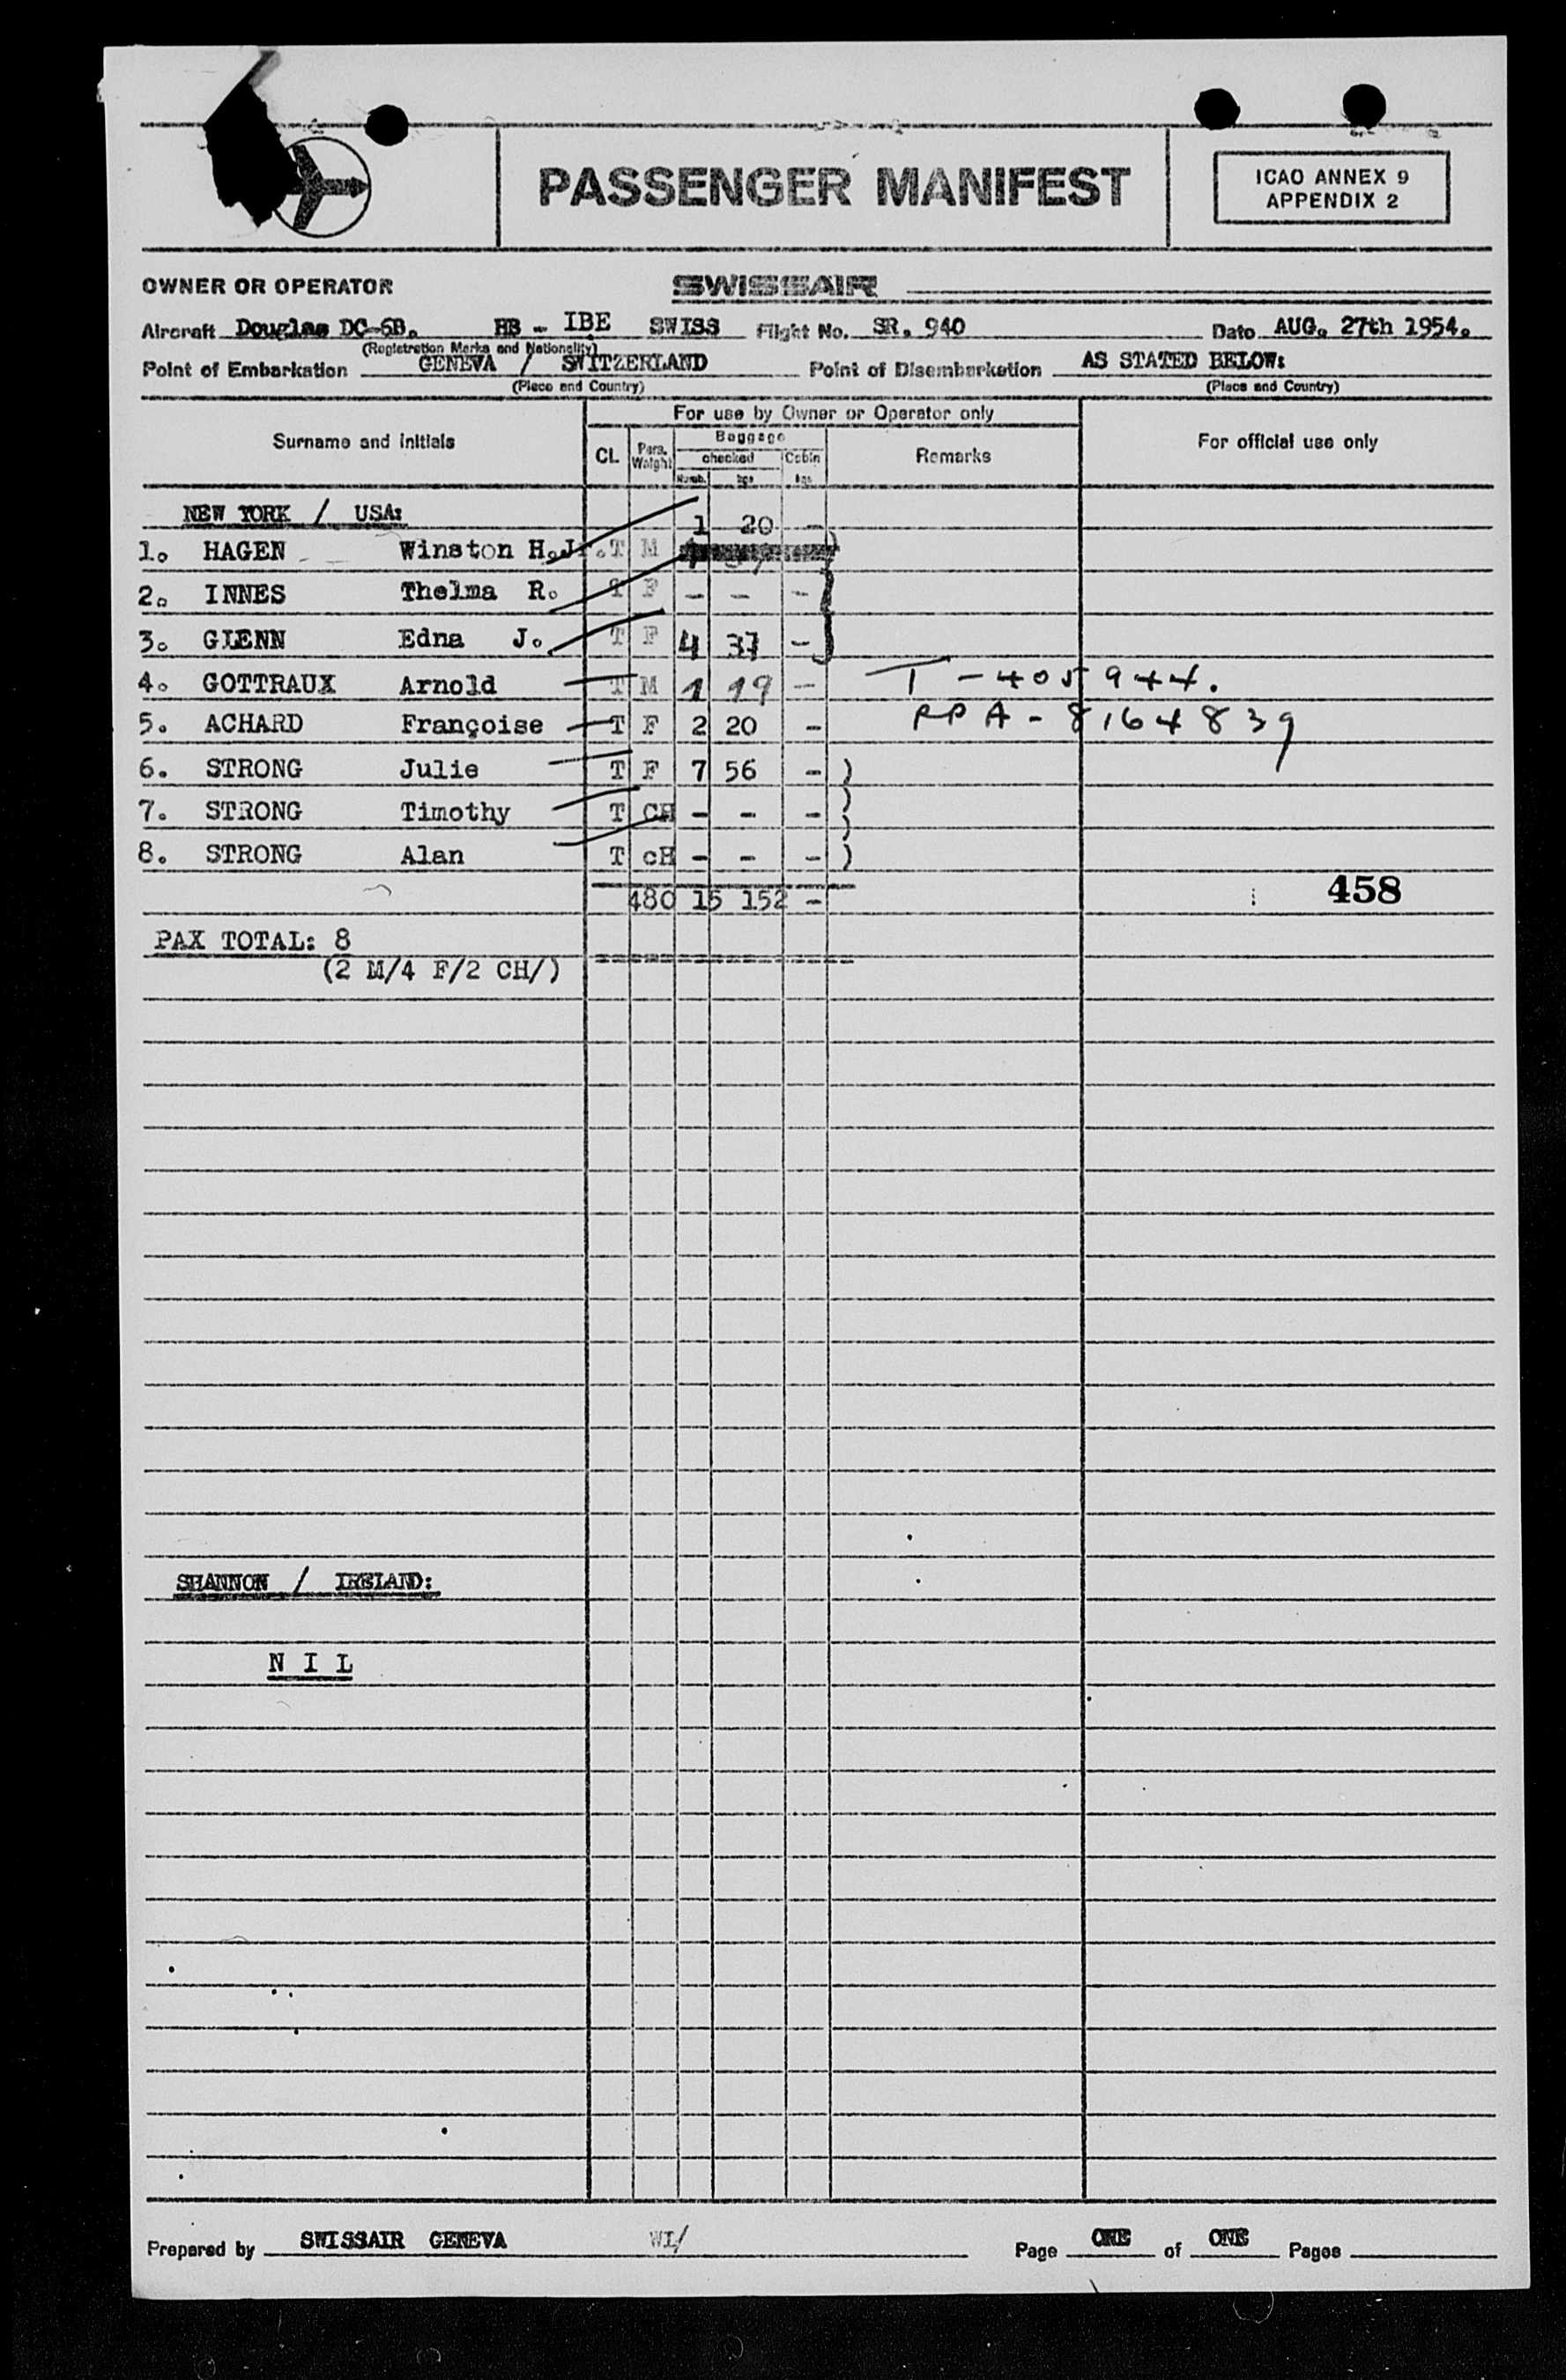 PASSENGER MANIFEST
ICAO ANNEX 9
APPENDIX 2
OWNER OR OPERATOR SWISSAIR
Aircraft Douglas DC-6B. HB - IBE SWISS Flight No. SR. 940 Date AUG. 27th 1954.
(Registration Marks and Nationality)
Point of Embarkation GENEVA / SWITZERLAND Point of Disembarkation AS STATED BELOW:
(Place and Country) (Place and Country)
For use by Owner or Operator only
Surname and initials CL Pers. Weight Baggage checked Cabin Remarks For official use only
Numb. kgs kgs
NEW YORK / USA:
1 20 -
1. HAGEN Winston H.Jr. T M
2. INNES Thelma R. T F - - -
3. GLENN Edna J. T F 4 37 -
4. GOTTRAUX Arnold T M 1 19 - T - 405944.
5. ACHARD Françoise T F 2 20 - PPA - 8164839
6. STRONG Julie T F 7 56 - )
7. STRONG Timothy T CH - - - )
8. STRONG Alan T cH - - - )
480 15 152 - 458
PAX TOTAL: 8
(2 M/4 F/2 CH/)
SHANNON / IRELAND:
N I L
Prepared by SWISSAIR GENEVA WI/ Page ONE of ONE Pages